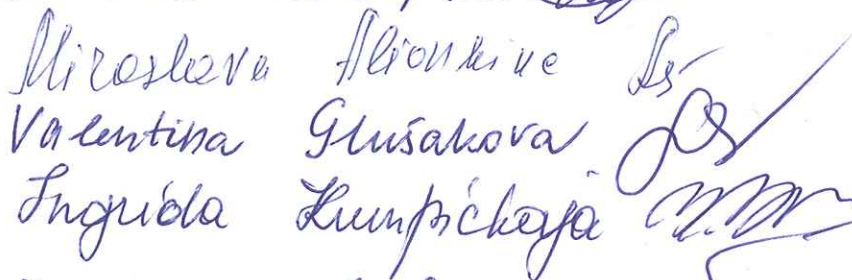 Miroslava Alionkine
Valentina Glušakova
Ingrida Krumpickaja